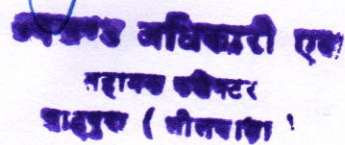 उपखण्ड अधिकारी एवं
सहायक कलेक्टर
शाहपुरा ( भीलवाडा )